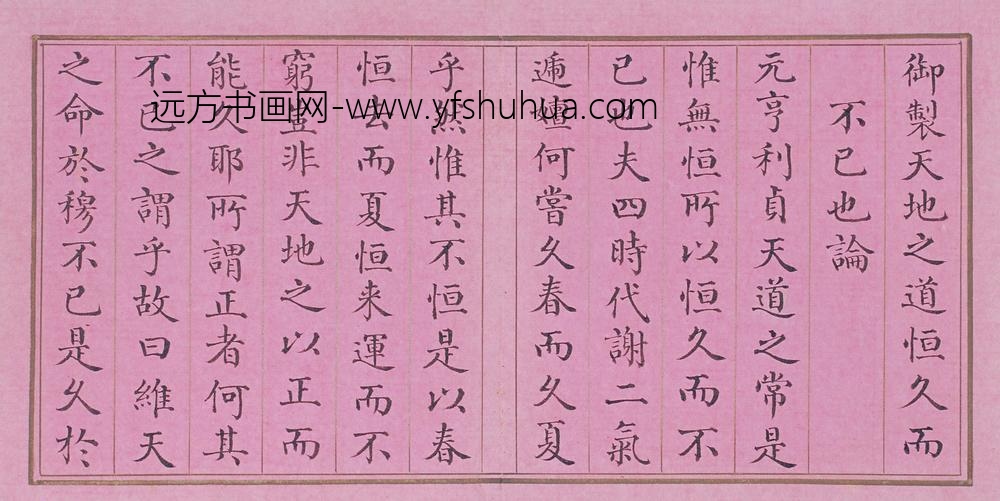 御製天地之道恒久而
不已也論
元亨利貞天道之常是
惟無恒所以恒久而不
已也夫四時代謝二氣
遞嬗何嘗久春而久夏
乎然惟其不恒是以春
恒去而夏恒来運而不
窮豈非天地之以正而
能久耶所謂正者何其
不已之謂乎故曰維天
之命於穆不已是久於
远方书画网-www.yfshuhua.com